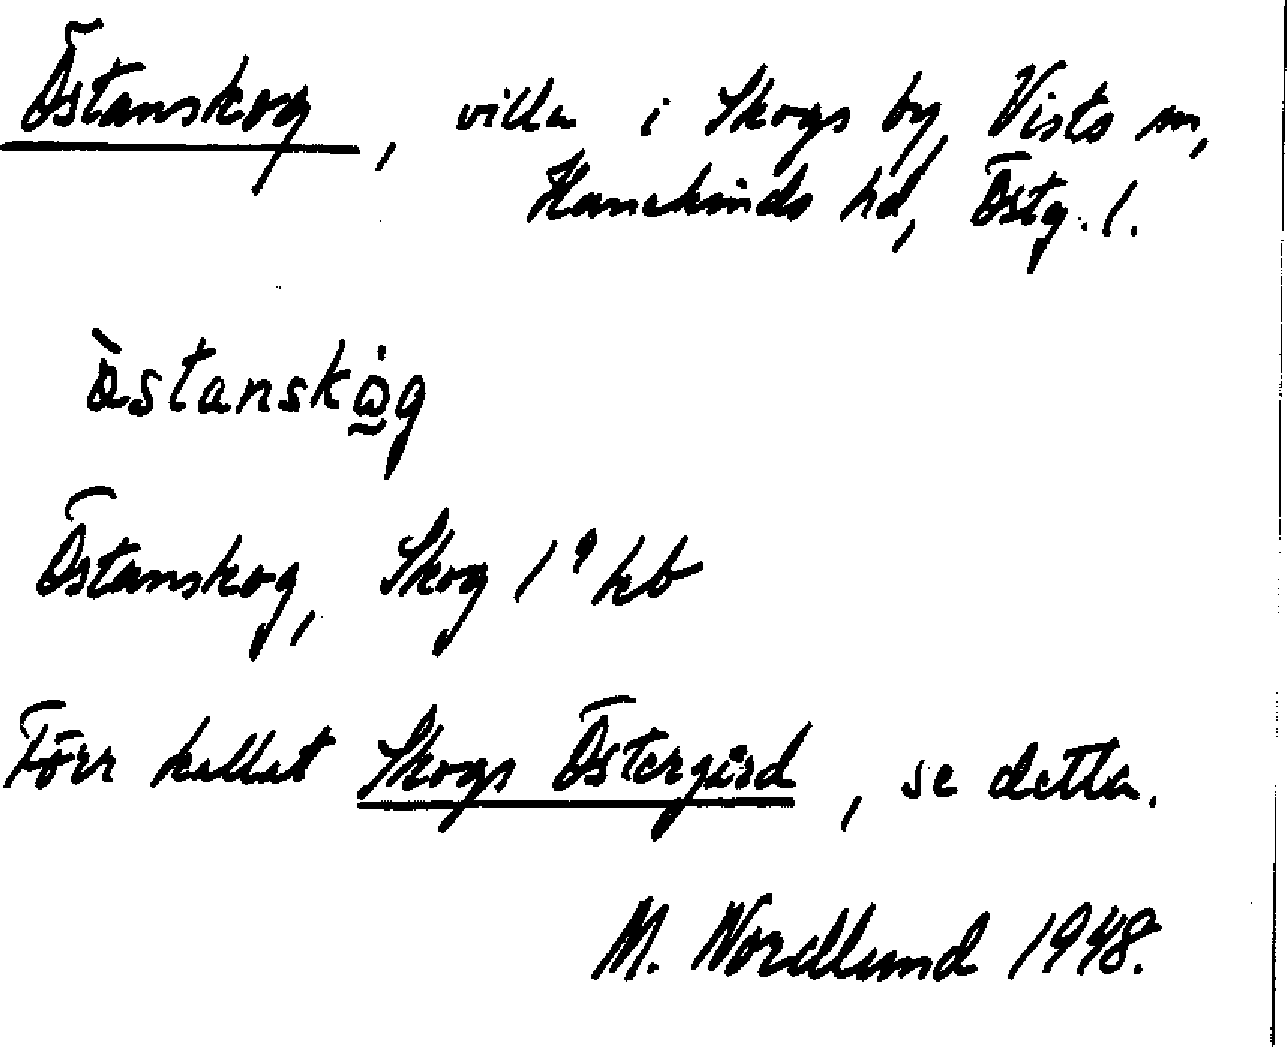 Östanskog, villa i Skogs by, Vists sn,
Hanekinds hd, Östg. l.
östanskog
Östanskog, Skog 1⁹ hb
Förr kallat Skogs Östergård, se detta.
M. Nordlund 1948.